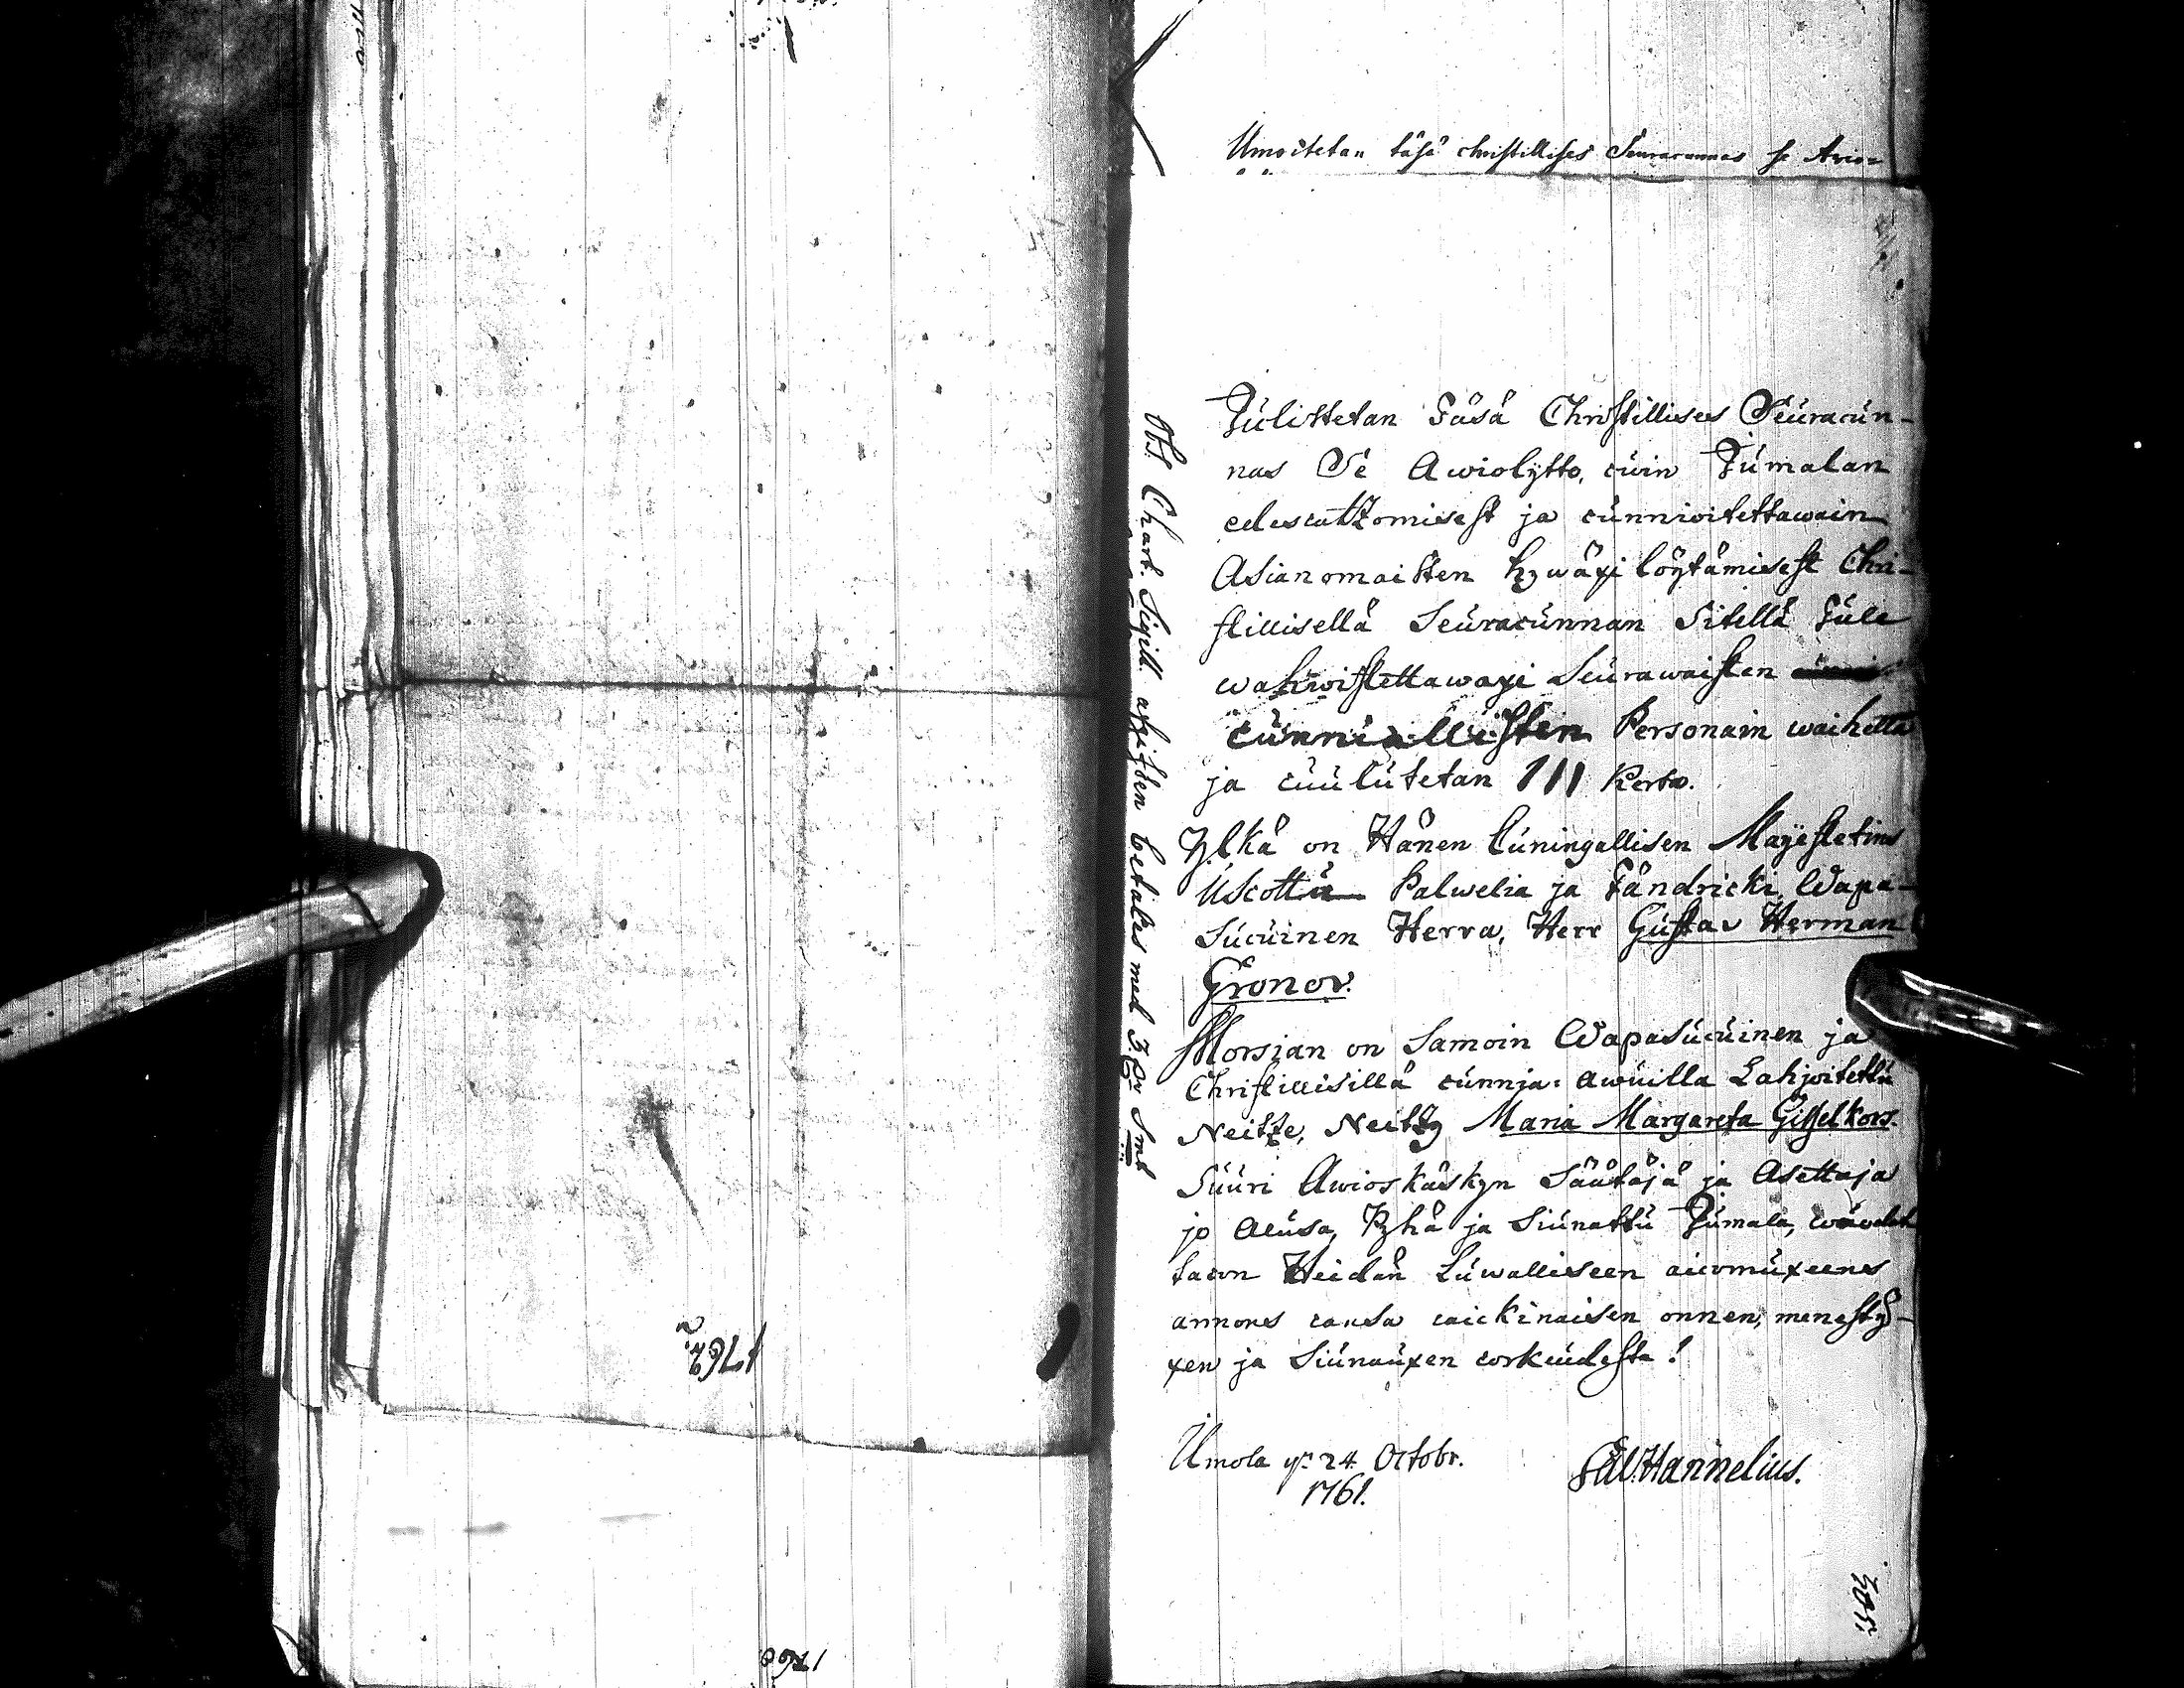 Umoitetan täsä christillises Seuracunnas se Avio=
Julistetan Täsä Christillises Seuracun-
nas Se Awiolijtto, cuin Jumalan
edescatzomisest ja cunnioitettawain
Asianomaisten hywäxi löytämisest Chri-
stillisellä Seuracunnan Sitellä Tule
wahwistettawaxi Seurawaisten
cunniallisten Personain waihella
ja cuulutetan III Kerta.
Ylkä on Hänen Cuningallisen Mayestetins
Uscottu Palwelia ja Fändricki, Wapa-
Sucuinen Herra, Herr Gustav Herman
Gronov.
Morsian on Samoin Wapasucuinen ja
Christillisillä cunnia= awuilla Lahjoitettu
Neitze, Neitzy Maria Margareta Gisselkors.
Suuri Awioskäskyn Säätäjä ja Asettaja
jo Alusa, Pyhä ja Siunattu Jumala,
tacon Heidän Luwalliseen aiwomuxeens
annons cansa caickinaisen onnen, menesty-
xen ja Siunauxen corkeudesta!
Umola yn 24 Octobr.
1761.
Sal. Hannelius.
Obs Chart. Sigill. afgiften betales med 3. Dr Smt
1762
1760